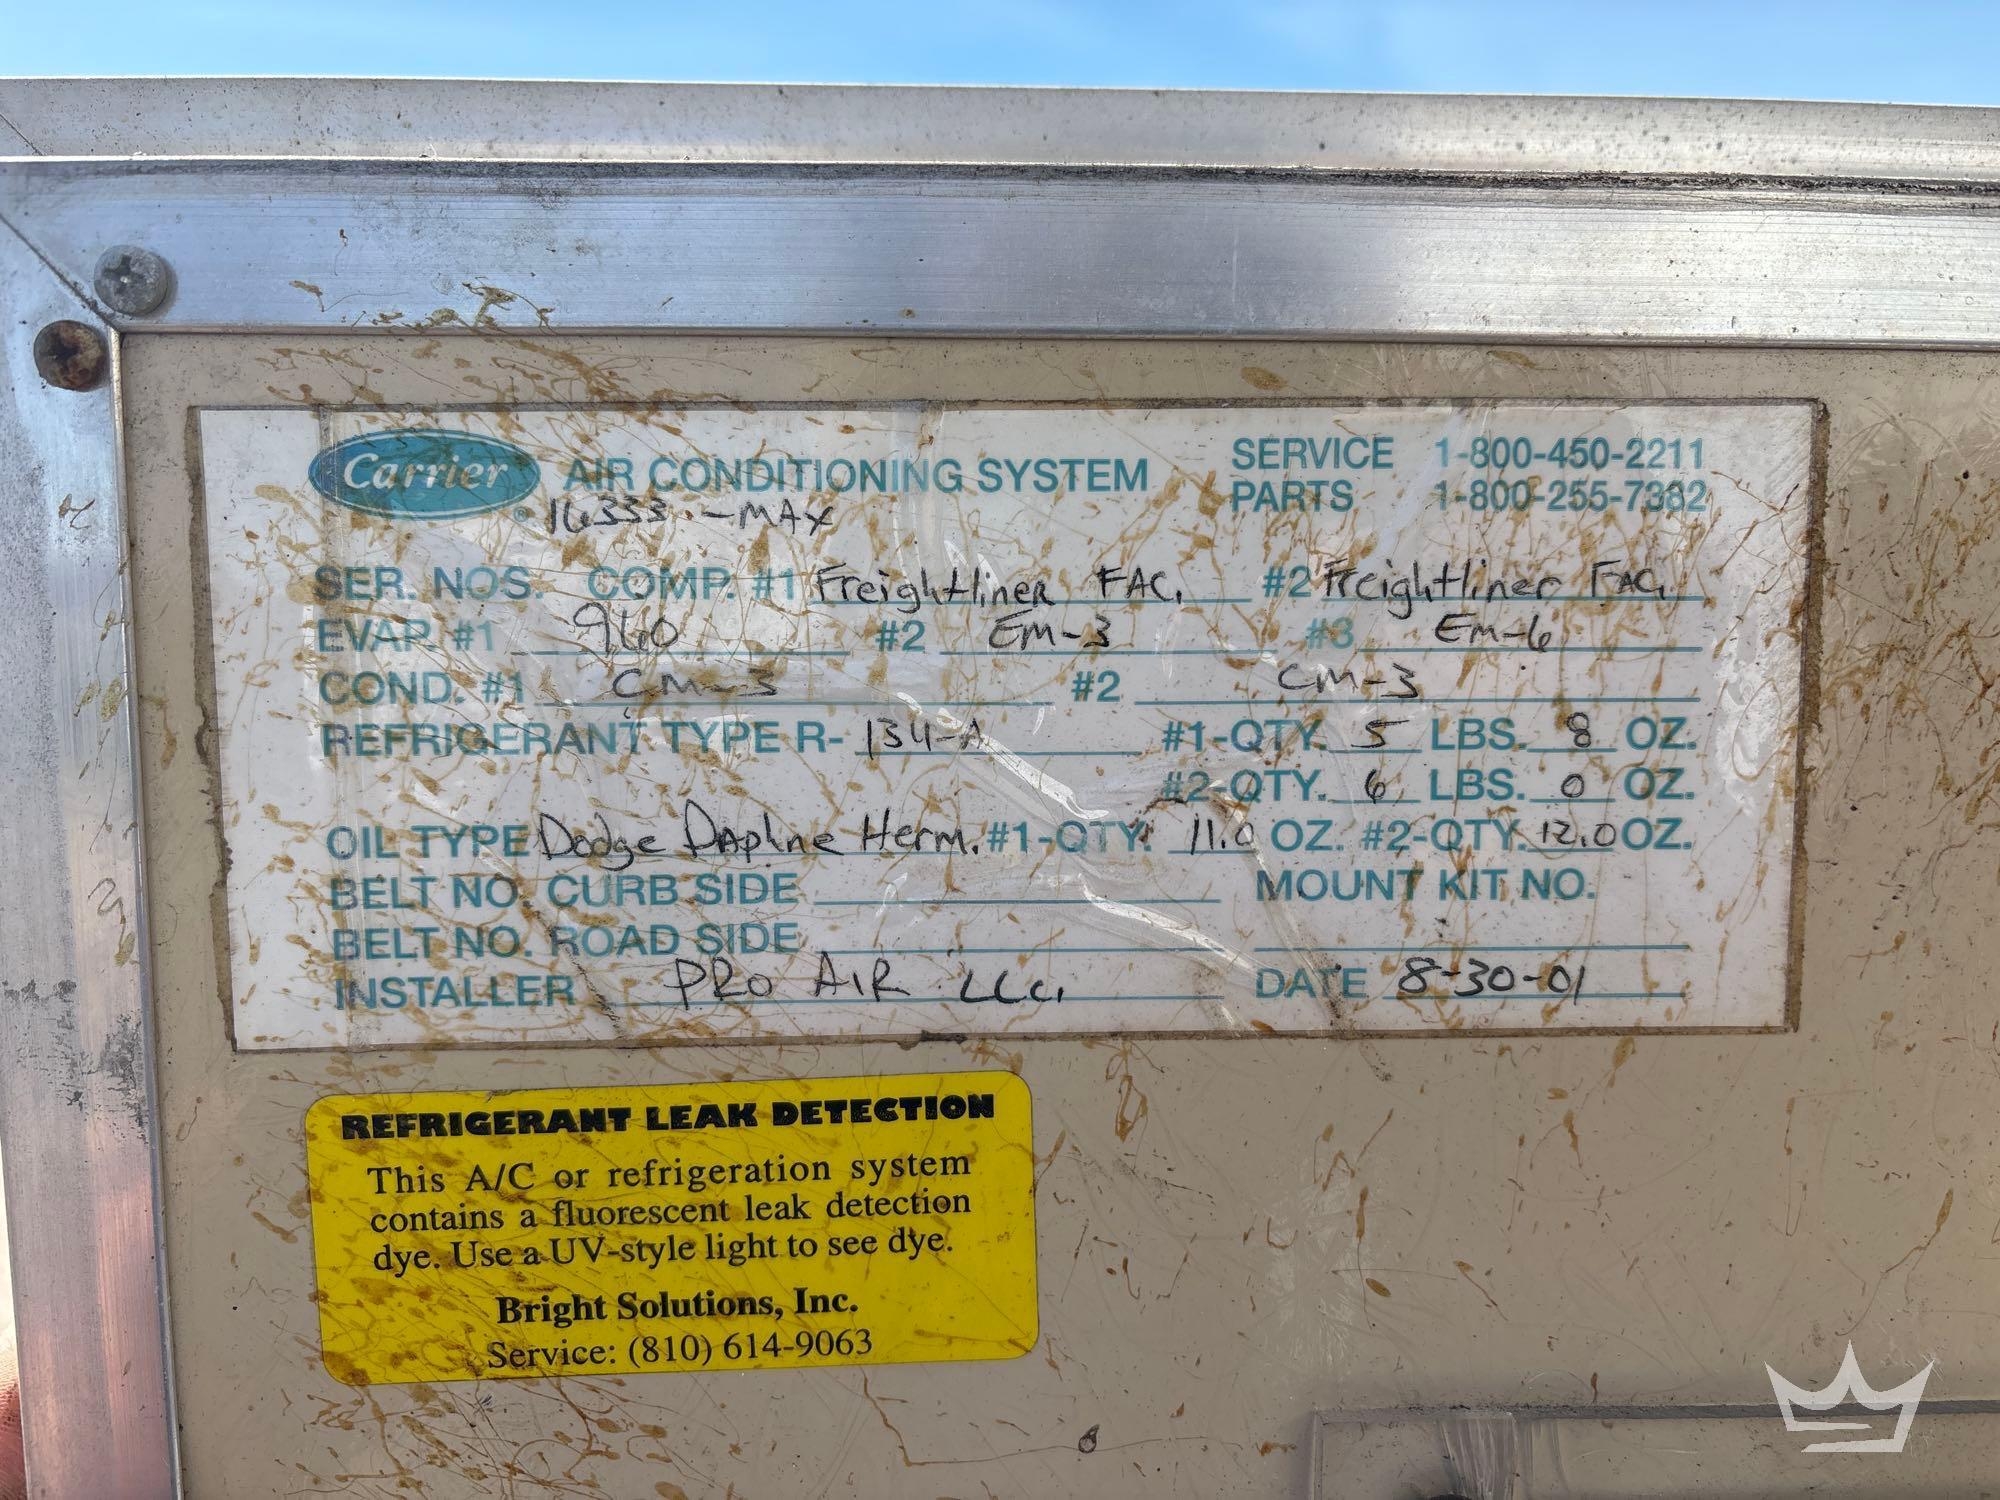 Carrier ® AIR CONDITIONING SYSTEM SERVICE 1-800-450-2211
PARTS 1-800-255-7382
16333 -MAX
SER. NOS. COMP. #1 Freightliner FAC. #2 Freightliner FAC.
EVAP. #1 960 #2 EM-3 #3 EM-6
COND. #1 CM-3 #2 CM-3
REFRIGERANT TYPE R- 134-A #1-QTY. 5 LBS. 8 OZ.
#2-QTY. 6 LBS. 0 OZ.
OIL TYPE Dodge Daphne Herm. #1-QTY. 11.0 OZ. #2-QTY. 12.0 OZ.
BELT NO. CURB SIDE MOUNT KIT NO.
BELT NO. ROAD SIDE
INSTALLER PRO AIR LLC. DATE 8-30-01
REFRIGERANT LEAK DETECTION
This A/C or refrigeration system
contains a fluorescent leak detection
dye. Use a UV-style light to see dye.
Bright Solutions, Inc.
Service: (810) 614-9063